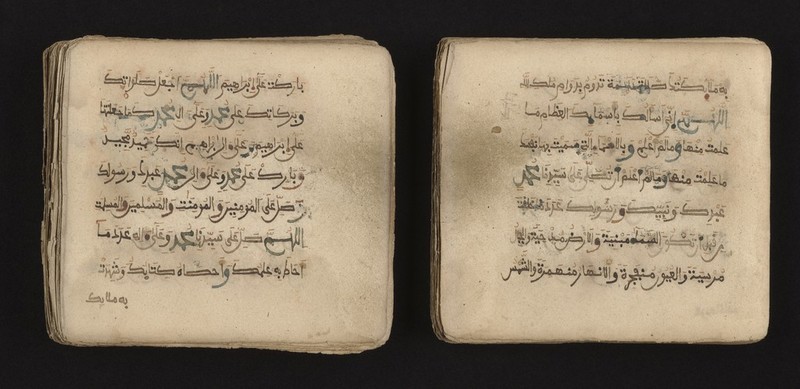 باركت على ابراهيم اللهم اجعل صلواتك
وبركاتك على محمد وعلى ال محمد كما جعلتها
على ابراهيم وعلى ال ابراهيم انك حميد مجيد
وبارك على محمد وعلى ال محمد عبدك ورسولك
وصل على المومنين والمومنت والمسلمين والمسلمت
اللهم صل على سيدنا محمد وعلى ءاله عدد ما
احاط به علمك واحصاه كتابك وشهدت
به ملايك
به ملايكتك صلاة دايمة تدوم بدوام ملك الله
اللهم اني اسالك باسمايك العظام ما
علمت منها وما لم اعلم وبالاسماء التي سميت بها نفسك
ما علمت منها وما لم اعلم ان تصلي على سيدنا محمد
عبدك ونبيك ورسولك عدد ما خلقت
من قبل ان تكون السماء مبنية والارض مدحية والجبال
مرسية والعيون منفجرة والانهار منهمرة والشمس